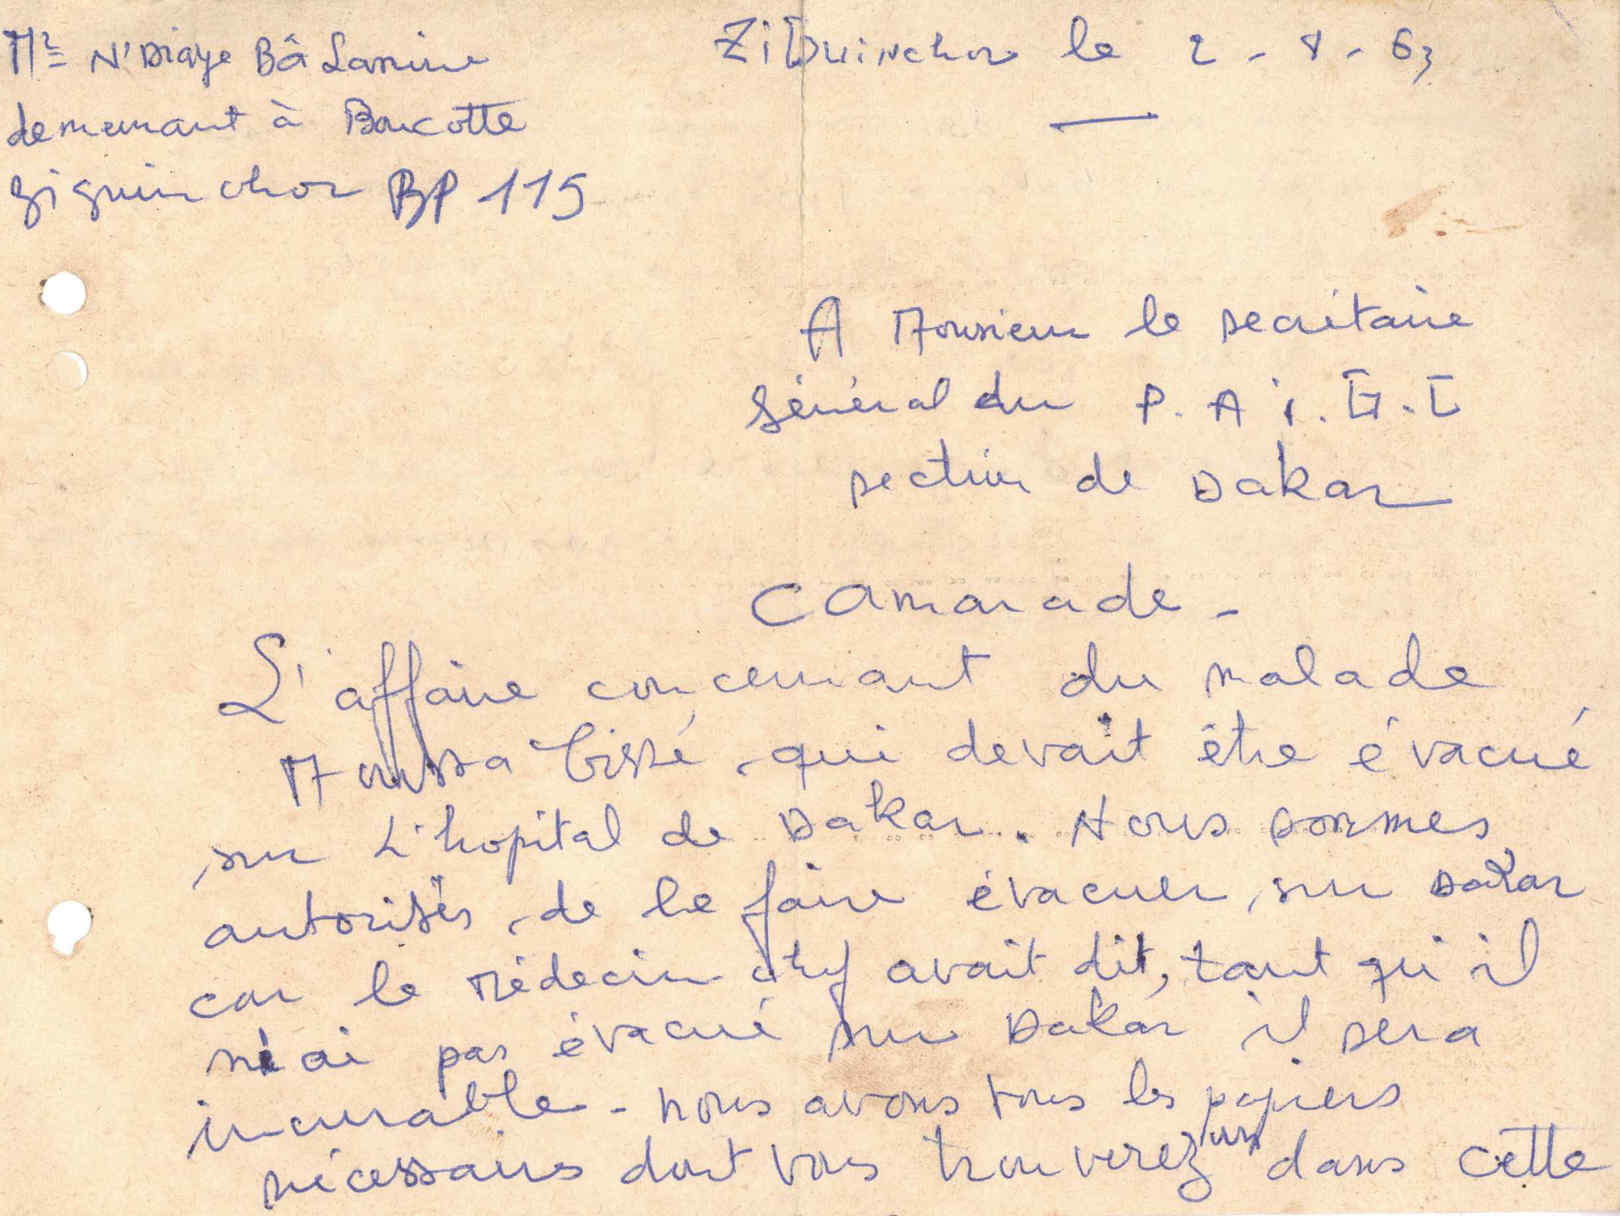 Mr N'Diaye Bâ Lamine
demeurant à Boucotte
Ziguinchor BP 115
Ziguinchor le 2-8-63
A Monsieur le secrétaire
Général du P.A.i.G.C
section de Dakar
Camarade-
L'affaire concernant du malade
Moussa Cissé, qui devait être évacué
sur L'hopital de Dakar. Nous sommes
autorisés, de le faire évacuer, sur Dakar
car le Médecin chef avait dit, tant qu'il
n'ai pas évacué sur Dakar il sera
incurable - nous avons tous les papiers
nécessairs dont vous trouverez un dans cette